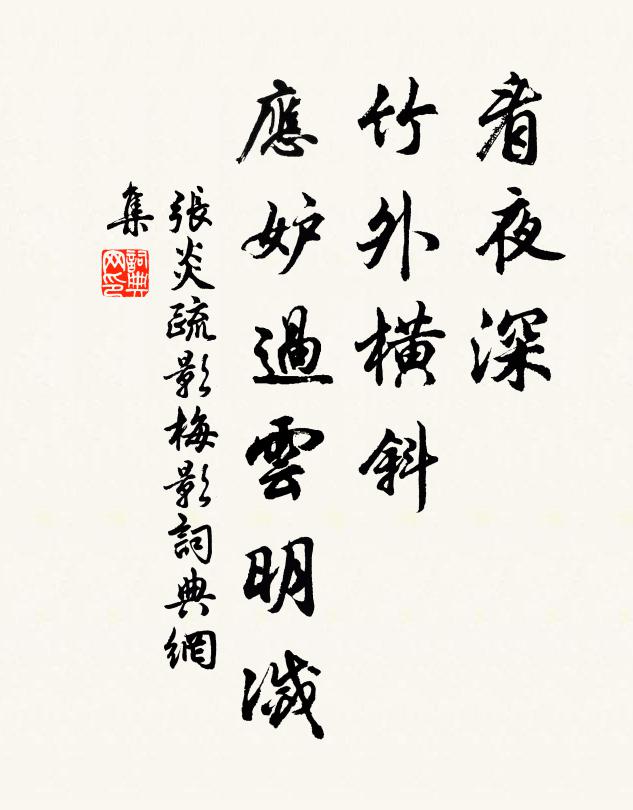 看夜深
竹外橫斜
應妒過雲明滅
張炎疏影梅影詞典網
集
詞典
网印